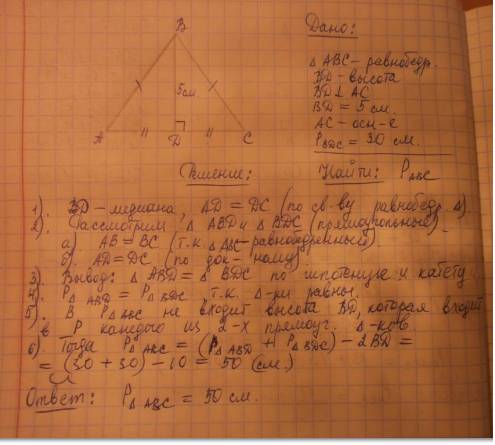 Дано:
B
△ABC - равнобедр.
BD - высота
BD ⊥ AC
5см
BD = 5 см.
AC - осн-е
A D C
P BDC = 30 см.
Решение:
Найти: P ABC
1). BD - медиана, AD = DC (по св-ву равнобедр. △).
2). Рассмотрим △ABD и △BDC (прямоугольные).
а) AB = BC (т.к. △ABC - равнобедренный).
б) AD = DC (по док-ному)
3). Вывод: △ABD = △BDC по гипотенузе и катету.
4). P△ABD = P△BDC т.к. △-ки равны.
5). В P△ABC не входит высота BD, которая входит
в P каждого из 2-х прямоуг. △-ков
6). Тогда P△ABC = (P△ABD + P△BDC) - 2BD =
= (30 + 30) - 10 = 50 (см.)
Ответ: P△ABC = 50 см.